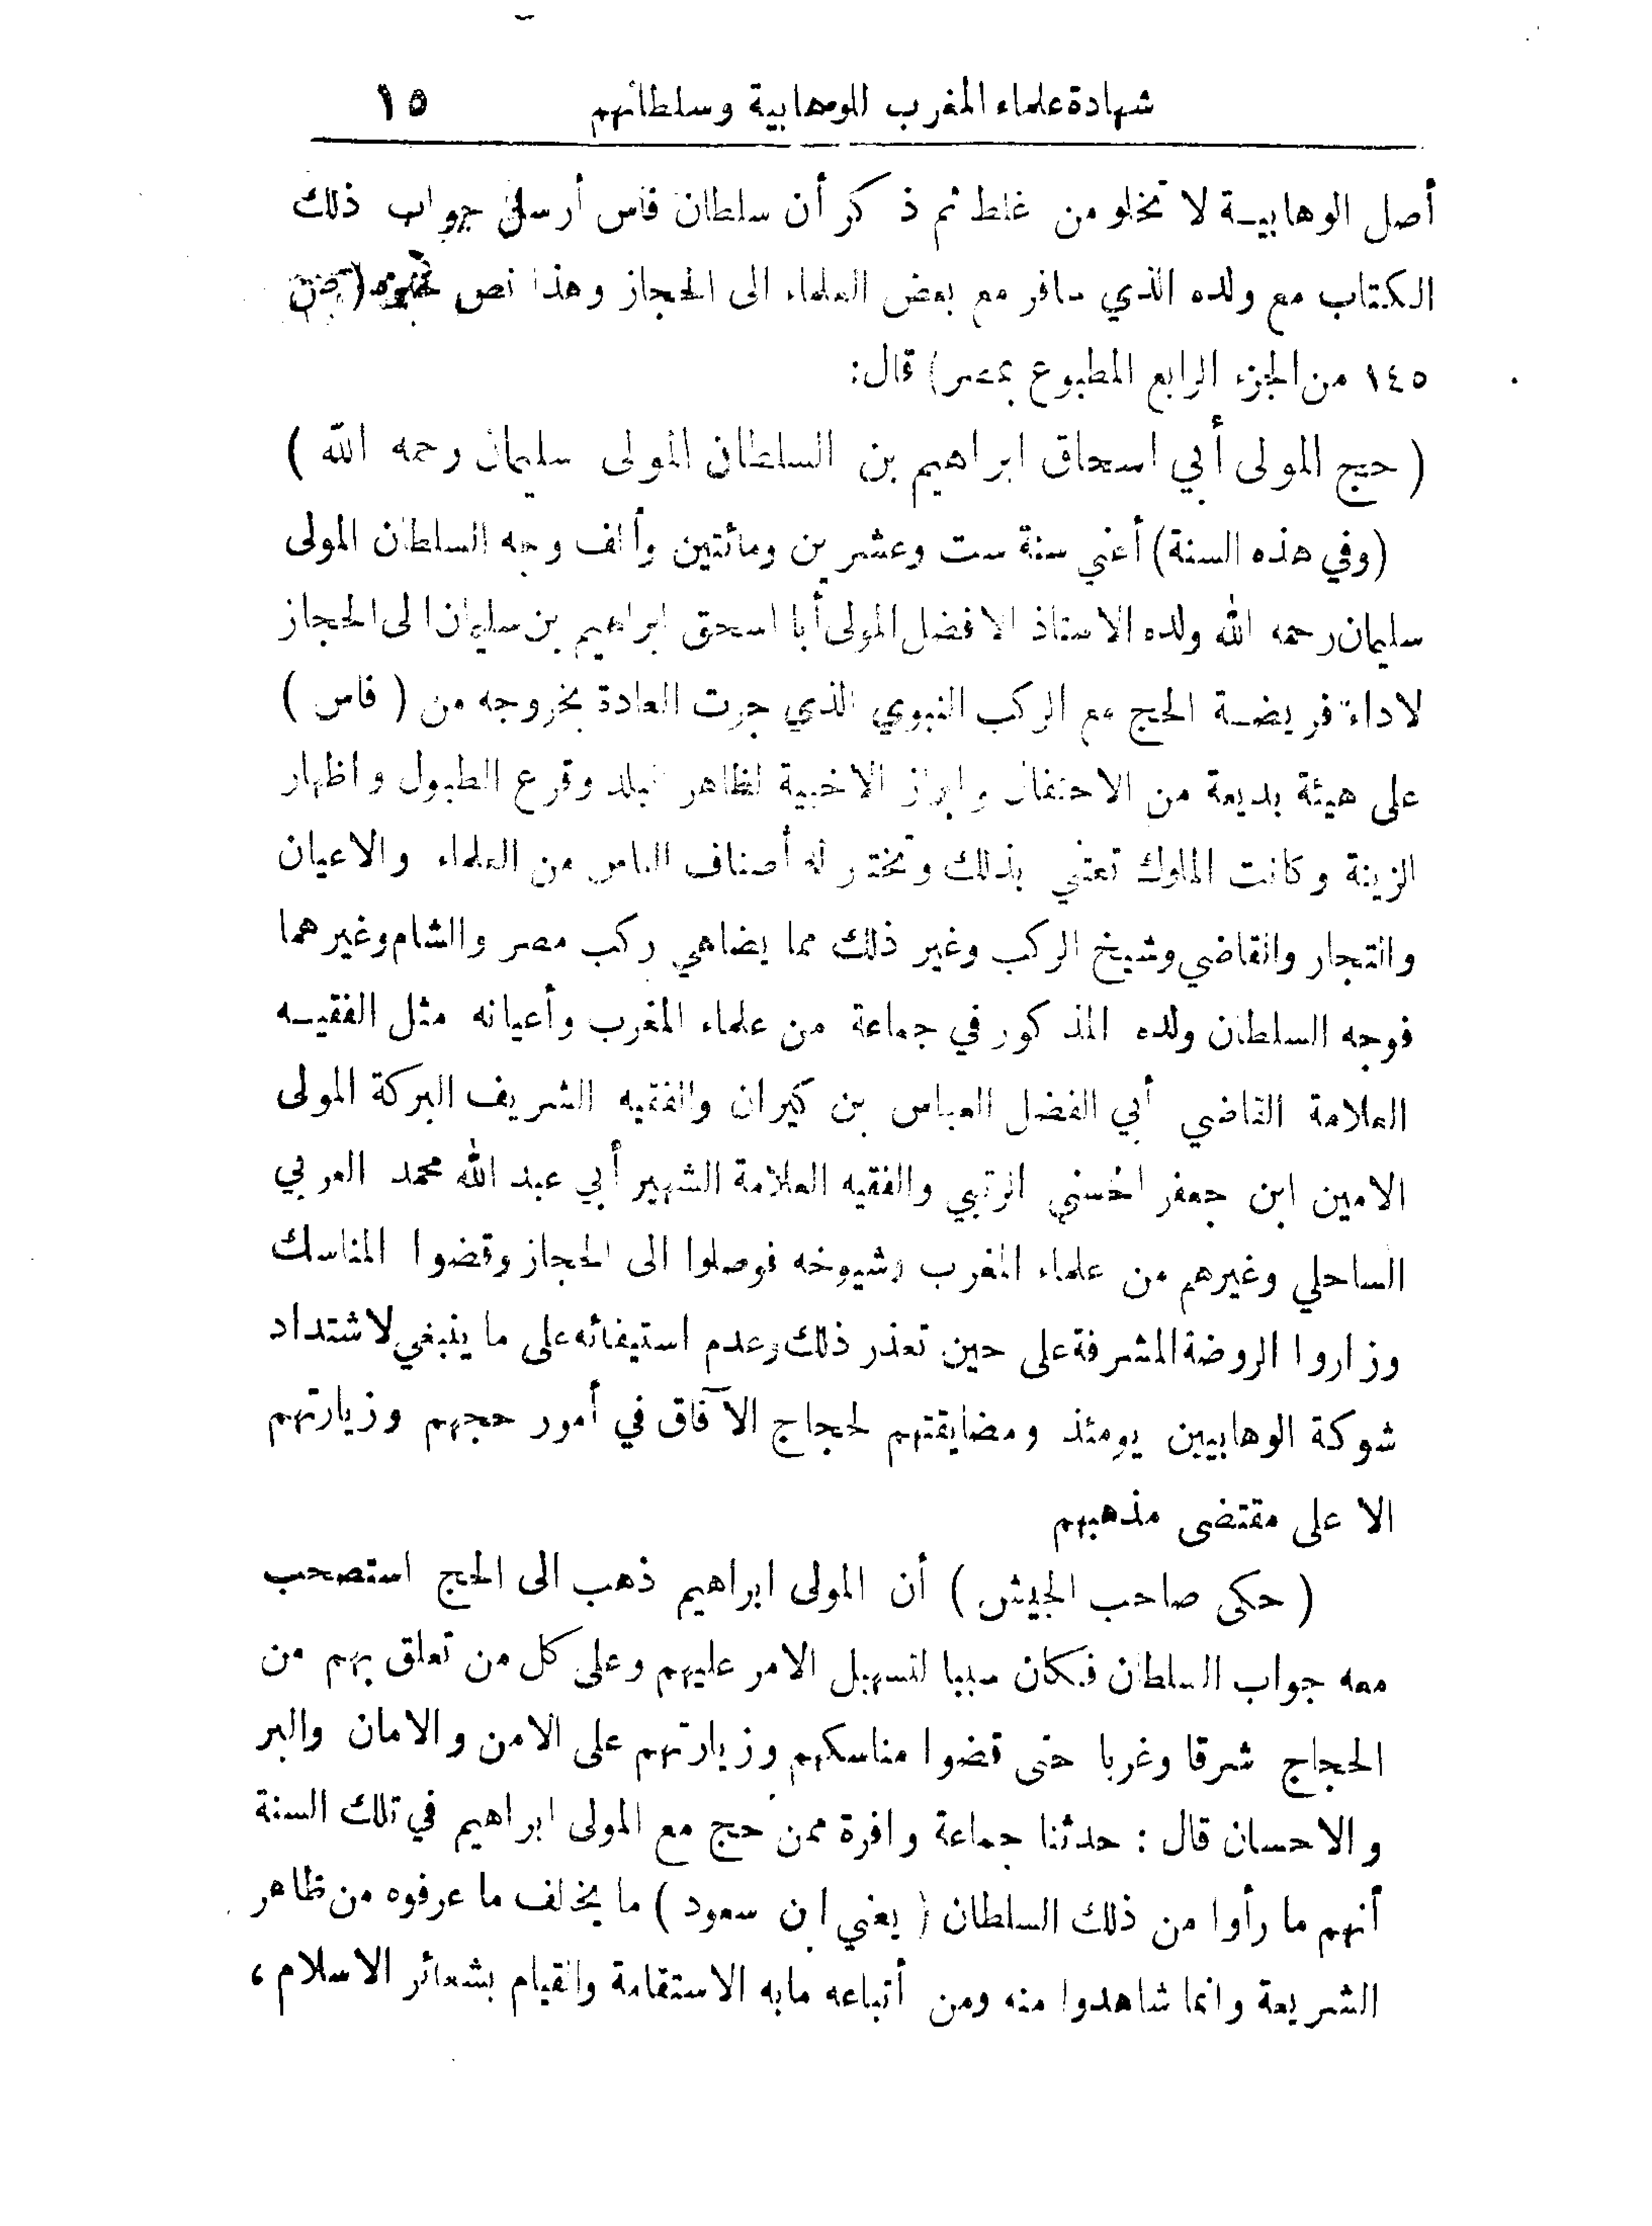 شهادة علماء المغرب للوهابية وسلطانهم ١٥
أصل الوهابية لا تخلو من غلط ثم ذكر أن سلطان فاس أرسل جواب ذلك
الكتاب مع ولده الذي سافر مع بعض العلماء الى الحجاز وهذا نص
١٤٥ من الجزء الرابع المطبوع بمصر) قال:
( حج المولى أبي اسحاق ابراهيم بن السلطان المولى سليمان رحمه الله )
(وفي هذه السنة) أعني سنة ست وعشرين ومائتين وألف وجه السلطان المولى
سليمان رحمه الله ولده الاستاذ الافضل المولى أبا اسحق ابراهيم بن سليمان الى الحجاز
لاداء فريضة الحج مع الركب النبوي الذي جرت العادة بخروجه من ( فاس )
على هيئة بديعة من الاحتفال وابراز الاخبية لظاهر البلد وقرع الطبول واظهار
الزينة وكانت الملوك تعتني بذلك وتختار له أصناف الناس من العلماء والاعيان
والتجار والقاضي وشيخ الركب وغير ذلك مما يضاهي ركب مصر والشام وغيرهما
فوجه السلطان ولده المذكور في جماعة من علماء المغرب وأعيانه مثل الفقيه
العلامة القاضي أبي الفضل العباس بن كيران والفقيه الشريف البركة المولى
الامين ابن جعفر الحسني الرتبي والفقيه العلامة الشهير أبي عبد الله محمد العربي
الساحلي وغيرهم من علماء المغرب وشيوخه فوصلوا الى الحجاز وقضوا المناسك
وزاروا الروضة المشرفة على حين تعذر ذلك وعدم استيفائه على ما ينبغي لاشتداد
شوكة الوهابيين يومئذ ومضايقتهم لحجاج الآفاق في أمور حجهم وزيارتهم
الا على مقتضى مذهبهم
( حكى صاحب الجيش ) أن المولى ابراهيم ذهب الى الحج استصحب
معه جواب السلطان فكان سببا لتسهيل الامر عليهم وعلى كل من تعلق بهم من
الحجاج شرقا وغربا حتى قضوا مناسكهم وزيارتهم على الامن والامان والبر
والاحسان قال : حدثنا جماعة وافرة ممن حج مع المولى ابراهيم في تلك السنة
أنهم ما رأوا من ذلك السلطان ( يعني ابن سعود ) ما يخالف ما عرفوه من ظاهر
الشريعة وانما شاهدوا منه ومن أتباعه مابه الاستقامة والقيام بشعائر الاسلام ،